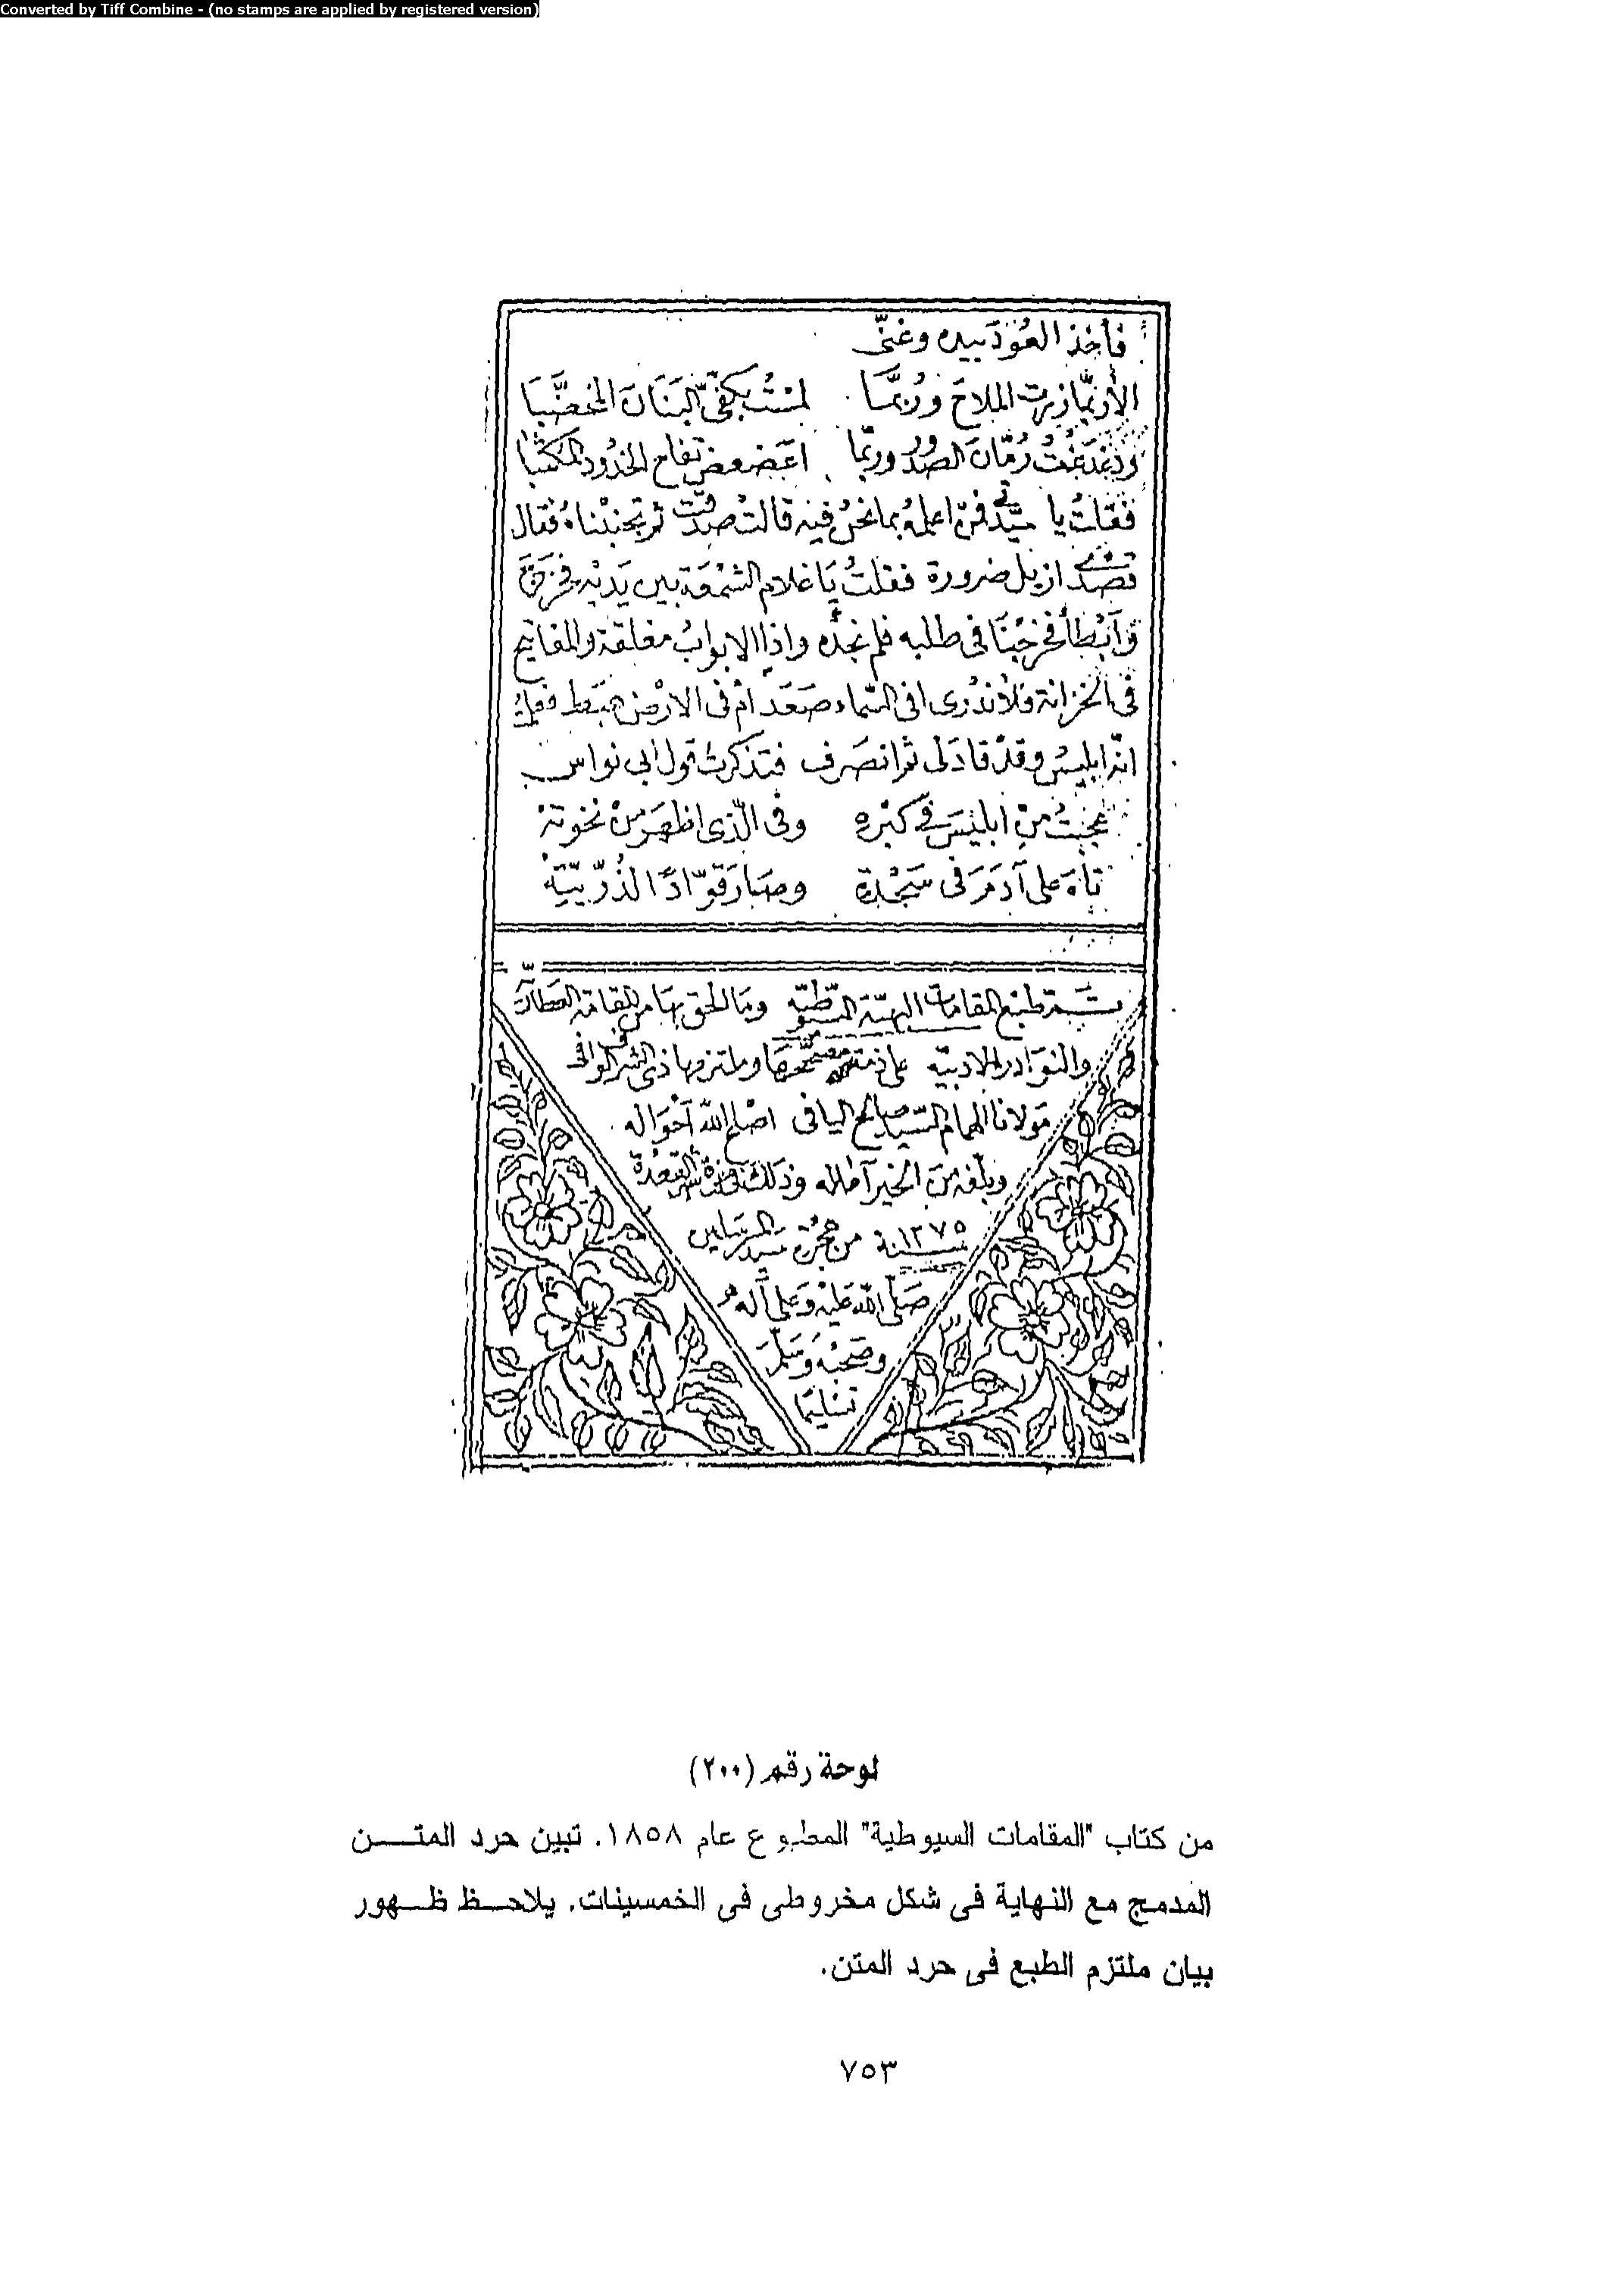 Converted by Tiff Combine - (no stamps are applied by registered version)
فأخذ العُودَ بيده وغنّى
الأربّما زرت الملاحَ ورُبَّما لمستُ بكفّى البَنَانَ المخضَّبَا
ودَغدَغتُ رُمّانَ الصدُور وربّما اعَضعض تفاح الخدُود المكتبا
فقلتُ يا سيّدتى فمن اعلمهُ بما نحنُ فيه قالت صدقت ثم تجنبْناهُ فقال
قصْدى ازيل ضرورة فقلتُ يَا غلام الشمْعَة بين يَدَيْه فخرَجَ
وَأبْطأ فخرجْنَا فى طلبه فلم نجدْه واذا الابوابُ مغلقة والمفاتيح
فى الخزانة فلا ندْرى افى السّماء صَعَد امْ فى الارْض هبَط فعلمتُ
انّه ابليسُ وقدْ قادَلى ثم انصَرف فتذكرتُ قول ابى نواس
عجبْتُ منْ ابليْسَ فى كبْره وفى الّذى اظهَر منْ نخوتهْ
تاهَ على آدمَرَ فى سَجْدة وصَارَ قوّادًا لذُرّيّتِهْ
تمّ طبْع المقامات البهيّة السّيوطيّه وما الحق بها من المقامة
والنّوادر الادبيّه على ذمّة مصَحّحهَا وملتزمها ذى الشرف
مَولانا الهمام السّيد صَالح اليافى اصْلح اللّه احْوَاله
وبلّغه منَ الخير آماله وذلك فى غرّة شهر القعْدة
سنة ١٢٧٥ من هجْرة سيّد المرسَلين
صَلّى اللّه عَليْه وَعلى آله
وصَحْبْه وَسَلّمَ
تسْليمًا
لوحة رقم (٢٠٠)
من كتاب "المقامات السيوطية" المطبوع عام ١٨٥٨. تبين حرد المتن
المدمج مع النهاية فى شكل مخروطى فى الخمسينات. يلاحظ ظهور
بيان ملتزم الطبع فى حرد المتن.
٧٥٣